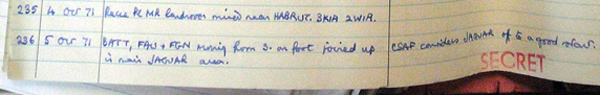 235 4 Oct 71 Recce PL MR landrover mined near HABRUT. 3KIA 2WIA.
236 5 Oct 71 BATT, FAU + FGN moving from S. on foot joined up CSAF considers JAGUAR off to a good start.
in main JAGUAR area.
SECRET